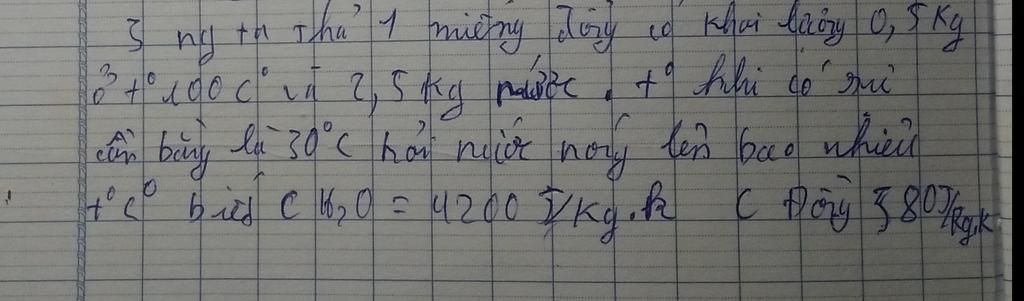 3 ng ta thả 1 miếng đồng có khối lượng 0,5 Kg
ở t° 100 C° và 2,5 Kg nước. t° khi có sự
cân bằng là 30°C hỏi nước nóng lên bao nhiêu
t°C° biết C H₂O = 4200 J/Kg.k C Đồng 380 J/Kg.K